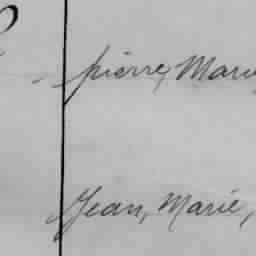 pierre, Marie
Jean, Marie,